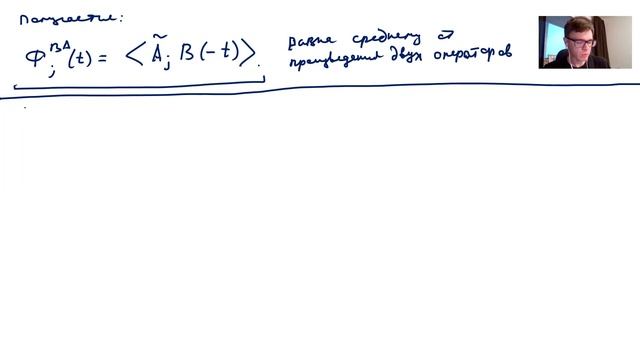 Получается:
Φ_j^{BA}(t) = ⟨Ã_j B(-t)⟩. равна среднему от
произведения двух операторов